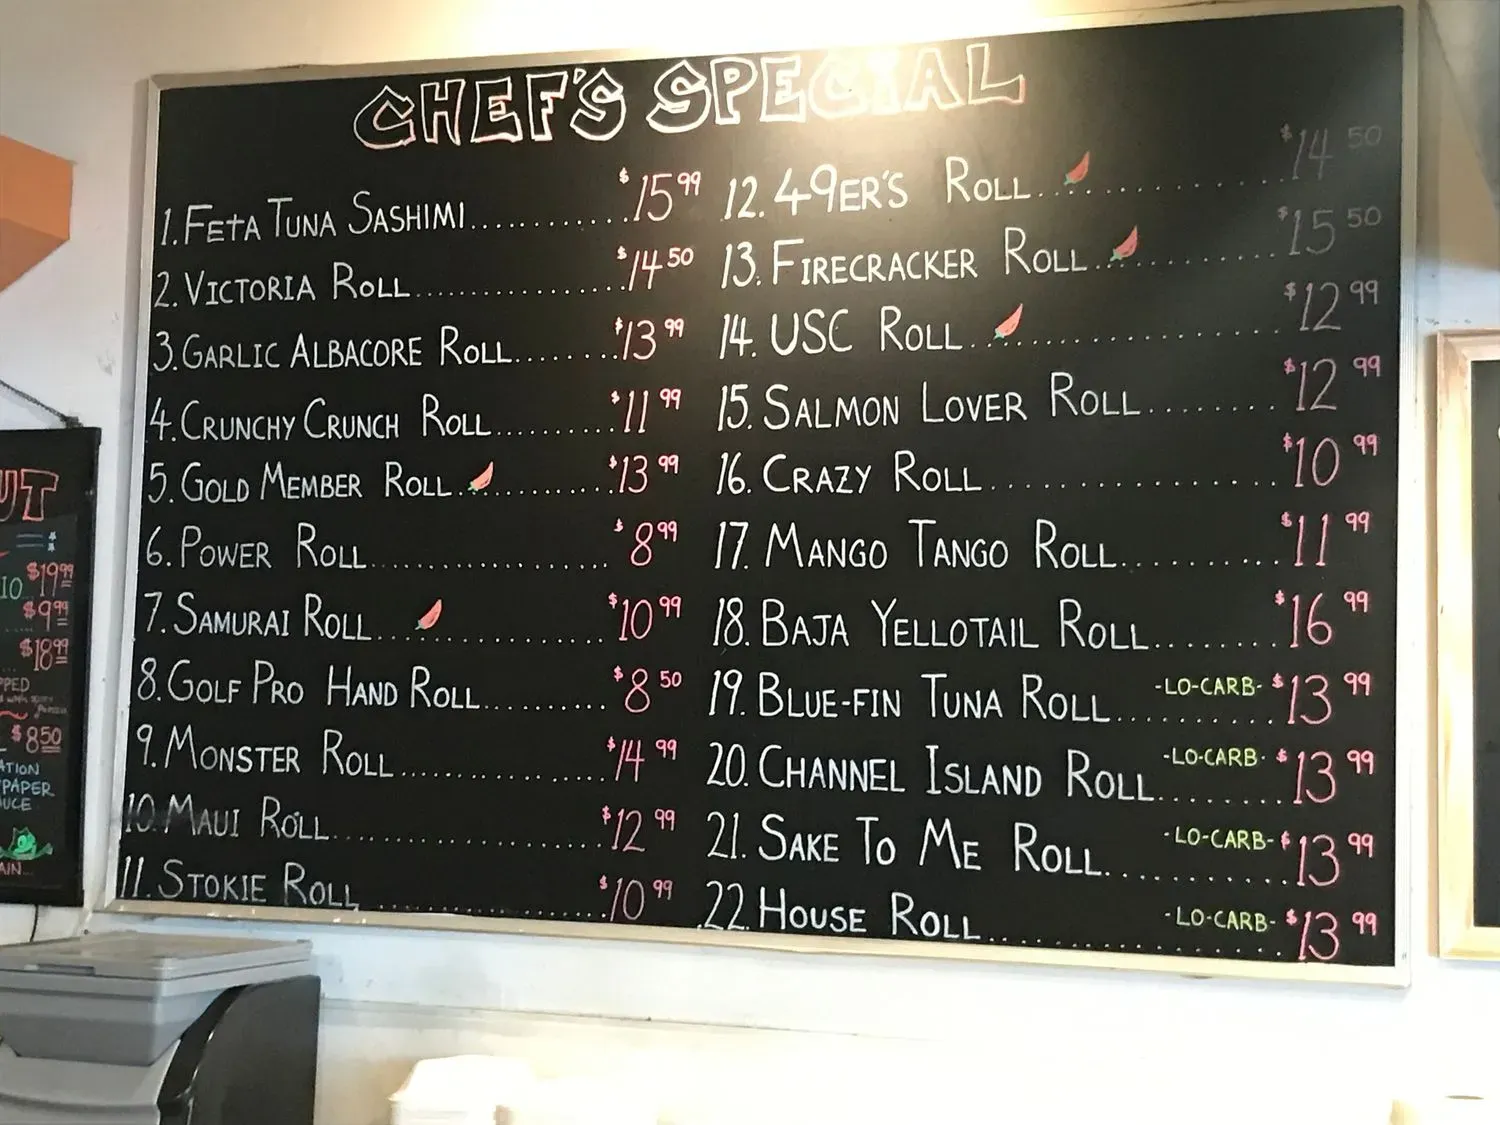 CHEF'S SPECIAL
1. FETA TUNA SASHIMI.......... $15 99
2. VICTORIA ROLL.......... $14 50
3. GARLIC ALBACORE ROLL.......... $13 99
4. CRUNCHY CRUNCH ROLL.......... $11 99
5. GOLD MEMBER ROLL.......... $13 99
6. POWER ROLL.......... $8 99
7. SAMURAI ROLL.......... $10 99
8. GOLF PRO HAND ROLL.......... $8 50
9. MONSTER ROLL.......... $14 99
10. MAUI ROLL.......... $12 99
11. STOKIE ROLL.......... $10 99
12. 49ER'S ROLL.......... $14 50
13. FIRECRACKER ROLL.......... $15 50
14. USC ROLL.......... $12 99
15. SALMON LOVER ROLL.......... $12 99
16. CRAZY ROLL.......... $10 99
17. MANGO TANGO ROLL.......... $11 99
18. BAJA YELLOTAIL ROLL.......... $16 99
19. BLUE-FIN TUNA ROLL.......... -LO-CARB- $13 99
20. CHANNEL ISLAND ROLL.......... -LO-CARB- $13 99
21. SAKE TO ME ROLL.......... -LO-CARB- $13 99
22. HOUSE ROLL.......... -LO-CARB- $13 99
UT
IO $19 99
$9 99
$18 99
PPED
$8 50
ATION
PAPER
UCE
AIN...